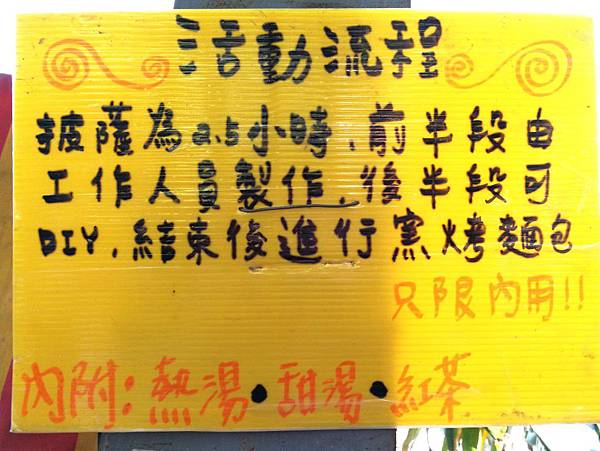 活動流程
披薩為2.5小時，前半段由
工作人員製作，後半段可
DIY，結束後進行窯烤麵包
只限內用!!
內附：熱湯•甜湯•紅茶